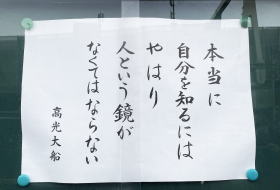 本当に
自分を知るには
やはり
人という鏡が
なくてはならない
高光大船